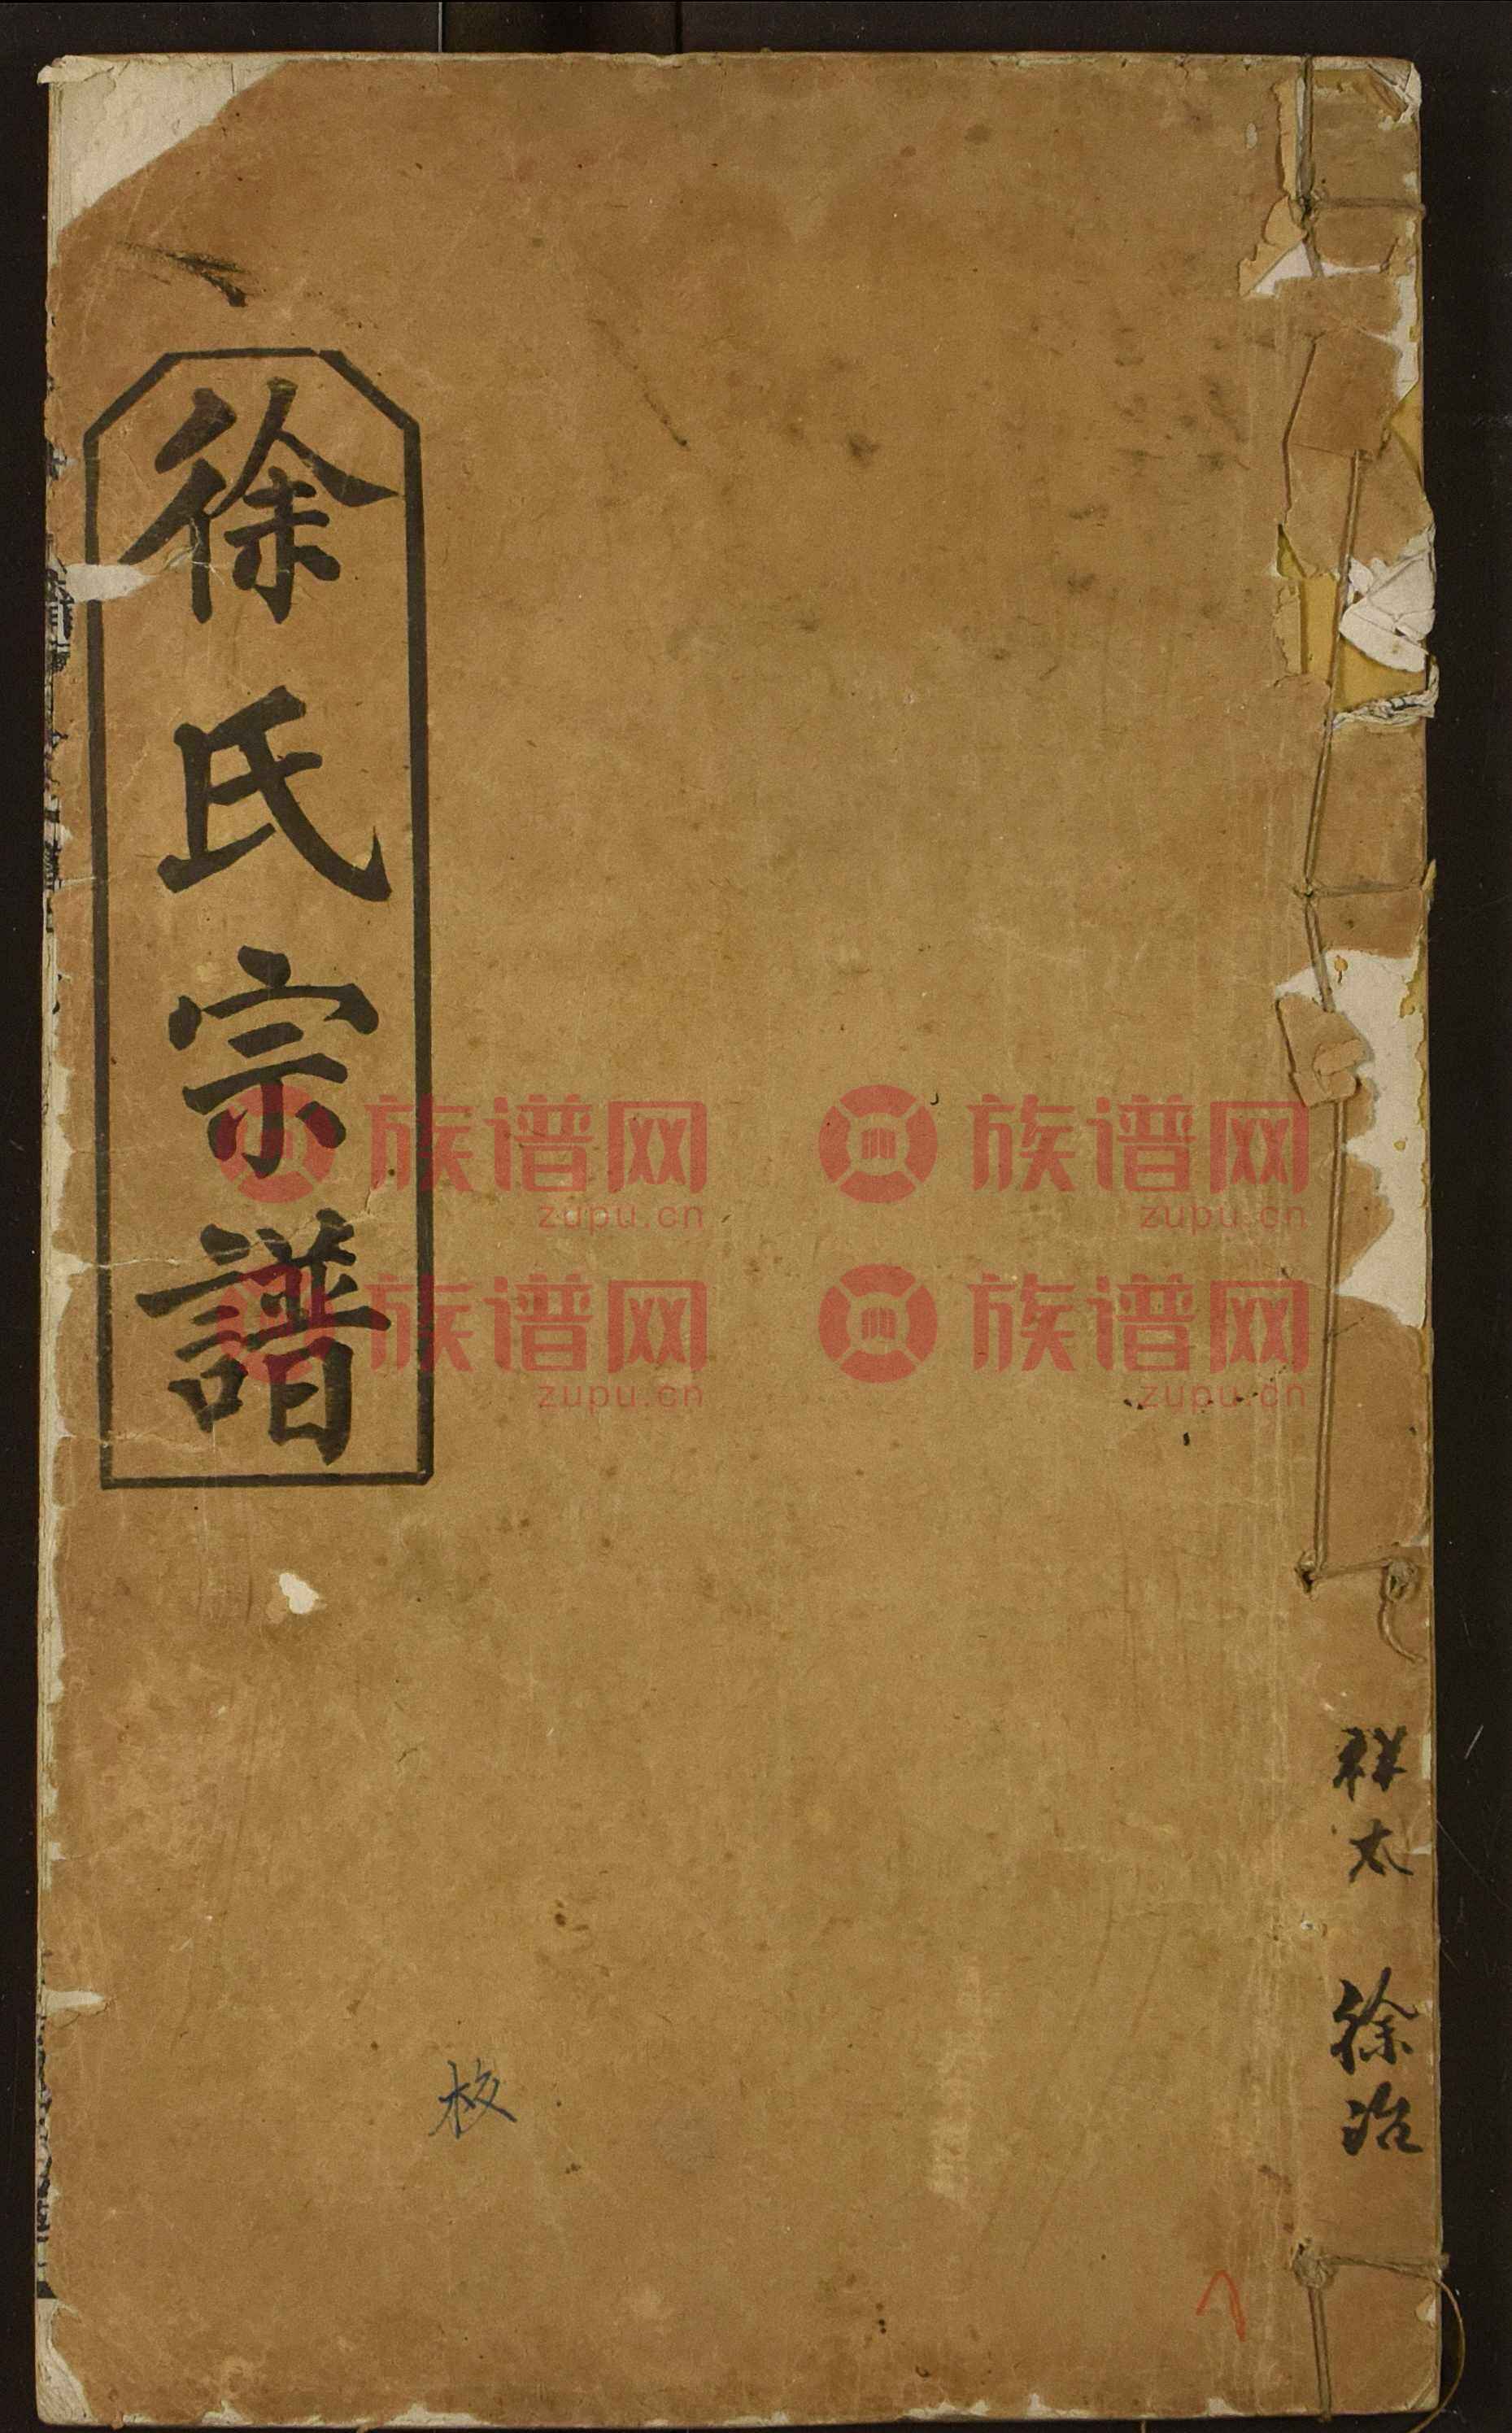 徐氏宗譜
祥太 徐冶
校
族谱网 族谱网
zupu.cn zupu.cn
族谱网 族谱网
zupu.cn zupu.cn